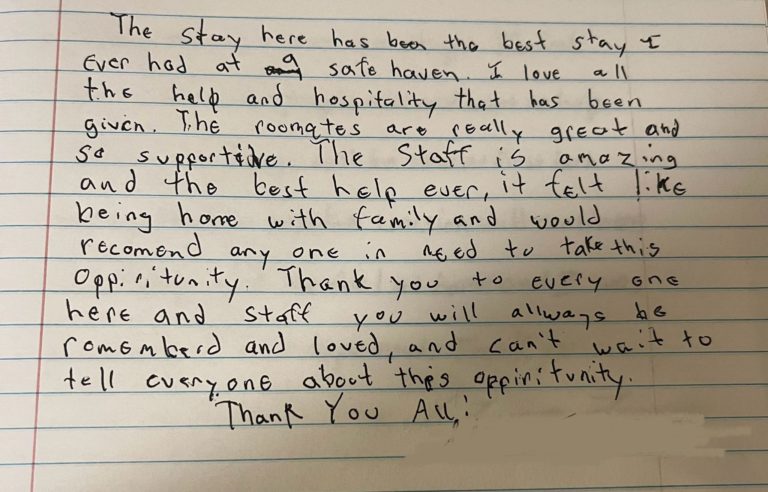 The stay here has been the best stay I
Ever had at a safe haven. I love all
the help and hospitality that has been
given. The roomates are really great and
so supportive. The Staff is amazing
and the best help ever, it felt like
being home with family and would
recomend any one in need to take this
Oppiritunity. Thank you to every one
here and staff you will allways be
romemberd and loved, and can't wait to
tell everyone about this oppiritunity.
Thank You All!